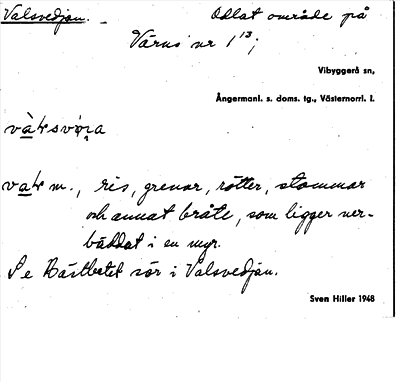 Valsvedjan. - Odlat område på
Värns nr 1¹³;
Vibyggerå sn,
Ångermanl. s. doms. tg., Västernorrl. l.
m., ris, grenar, rötter, stammar
och annat bråte, som ligger ner-
bäddat i en myr.
Se Hästbetet sör i Valsvedjan.
Sven Hiller 1948